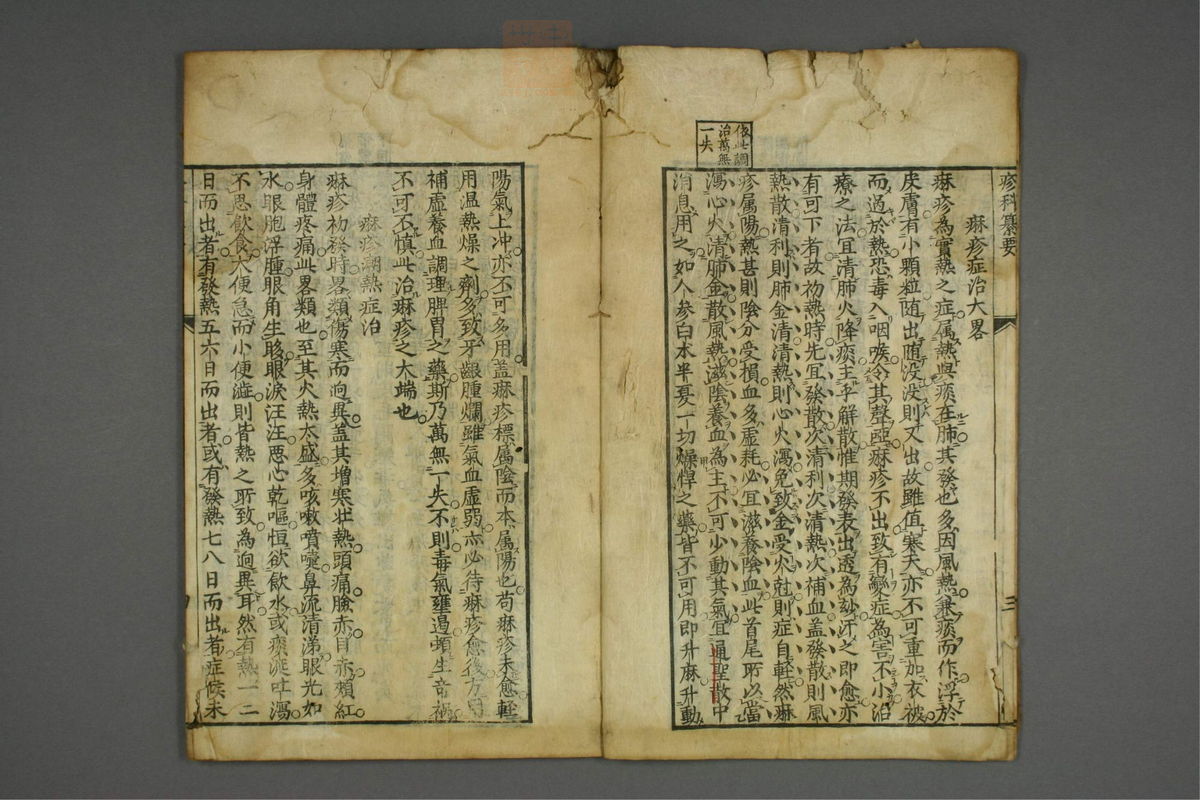 疹科纂要
三
依此調
治萬無
一失
痳疹症治大畧
痳疹為實熱之症属熱與痰在肺其發也多因風熱兼痰而作浮於
皮膚有小顆粒随出随没没則又出故雖值寒天亦不可重加衣被
而過於熱恐毒入咽喉令其聲啞痳疹不出致有變症為害不小治
療之法宜清肺火降痰主乎解散惟期發表出透為妙汗之即愈亦
有可下者故初熱時先宜發散次清利次清熱次補血盖發散則風
熱散清利則肺金清清熱則心火瀉免致金受火尅則症自軽然痳
疹属陽熱甚則陰分受損血多虚耗必宜滋養陰血此首尾所以當
瀉心火清肺金散風熱滋陰養血為主不可少動其氣宜通聖散中
消息用之如人參白朮半夏一切燥悍之藥皆不可用即升麻升動
陽氣上冲亦不可多用盖痳疹標属陰而本属陽也苟痳疹未愈輕
用温熱燥之劑多致牙齦腫爛雖氣血虚弱亦必待痳疹愈後方用
補虚養血調理脾胃之藥斯乃萬無一失不則毒氣壅遏頓生奇禍
不可不慎此治痳疹之大端也
痳疹潮熱症治
痳疹初發時畧類傷寒而逈異盖其增寒壮熱頭痛臉赤目赤頬紅
身體疼痛此畧類也至其火熱太盛多咳嗽噴嚏鼻流清涕眼光如
水眼胞浮腫眼角生眵眼淚汪汪悪心乾嘔恒欲飲水或痰涎吐瀉
不思飲食大便急而小便澁則皆熱之所致為逈異耳然有熱一二
日而出者有發熱五六日而出者或有發熱七八日而出者症候未